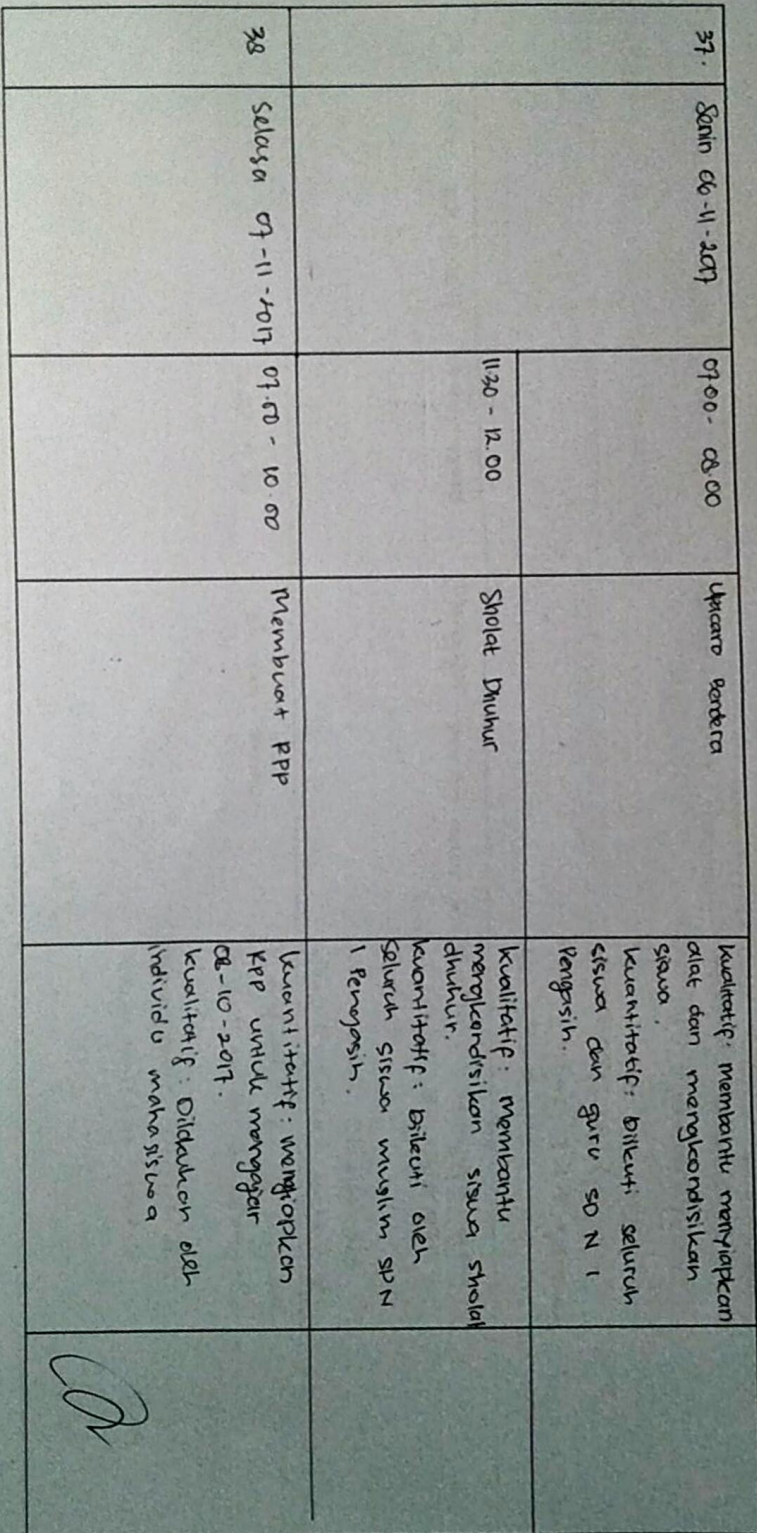 37.
Senin 06-11-2017
07.00 - 08.00
Upacara Bendera
Kualitatif: Membantu menyiapkan
alat dan mengkondisikan
siswa.
Kuantitatif: Diikuti seluruh
siswa dan guru SD N 1
Pengasih.
11.30 - 12.00
Sholat Dhuhur
Kualitatif: Membantu
mengkondisikan siswa sholat
dhuhur.
Kuantitatif: Diikuti oleh
seluruh siswa muslim SD N
1 Pengasih.
38
Selasa 07-11-2017
07.00 - 10.00
Membuat RPP
Kuantitatif: menyiapkan
RPP untuk mengajar
08-10-2017.
Kualitatif: Dilakukan oleh
individu mahasiswa